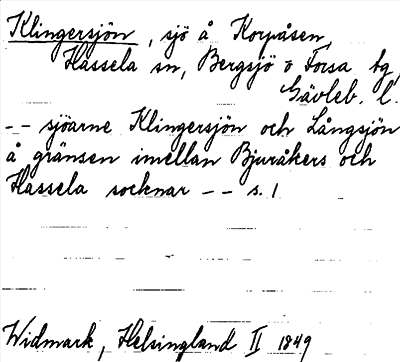 Klingersjön, sjö å Korpåsen,
Hassela sn, Bergsjö o Forsa tg,
Gävleb. l.
-- sjöarne Klingersjön och Långsjön
å gränsen imellan Bjuråkers och
Hassela socknar -- s. 1
Widmark, Helsingland II 1849